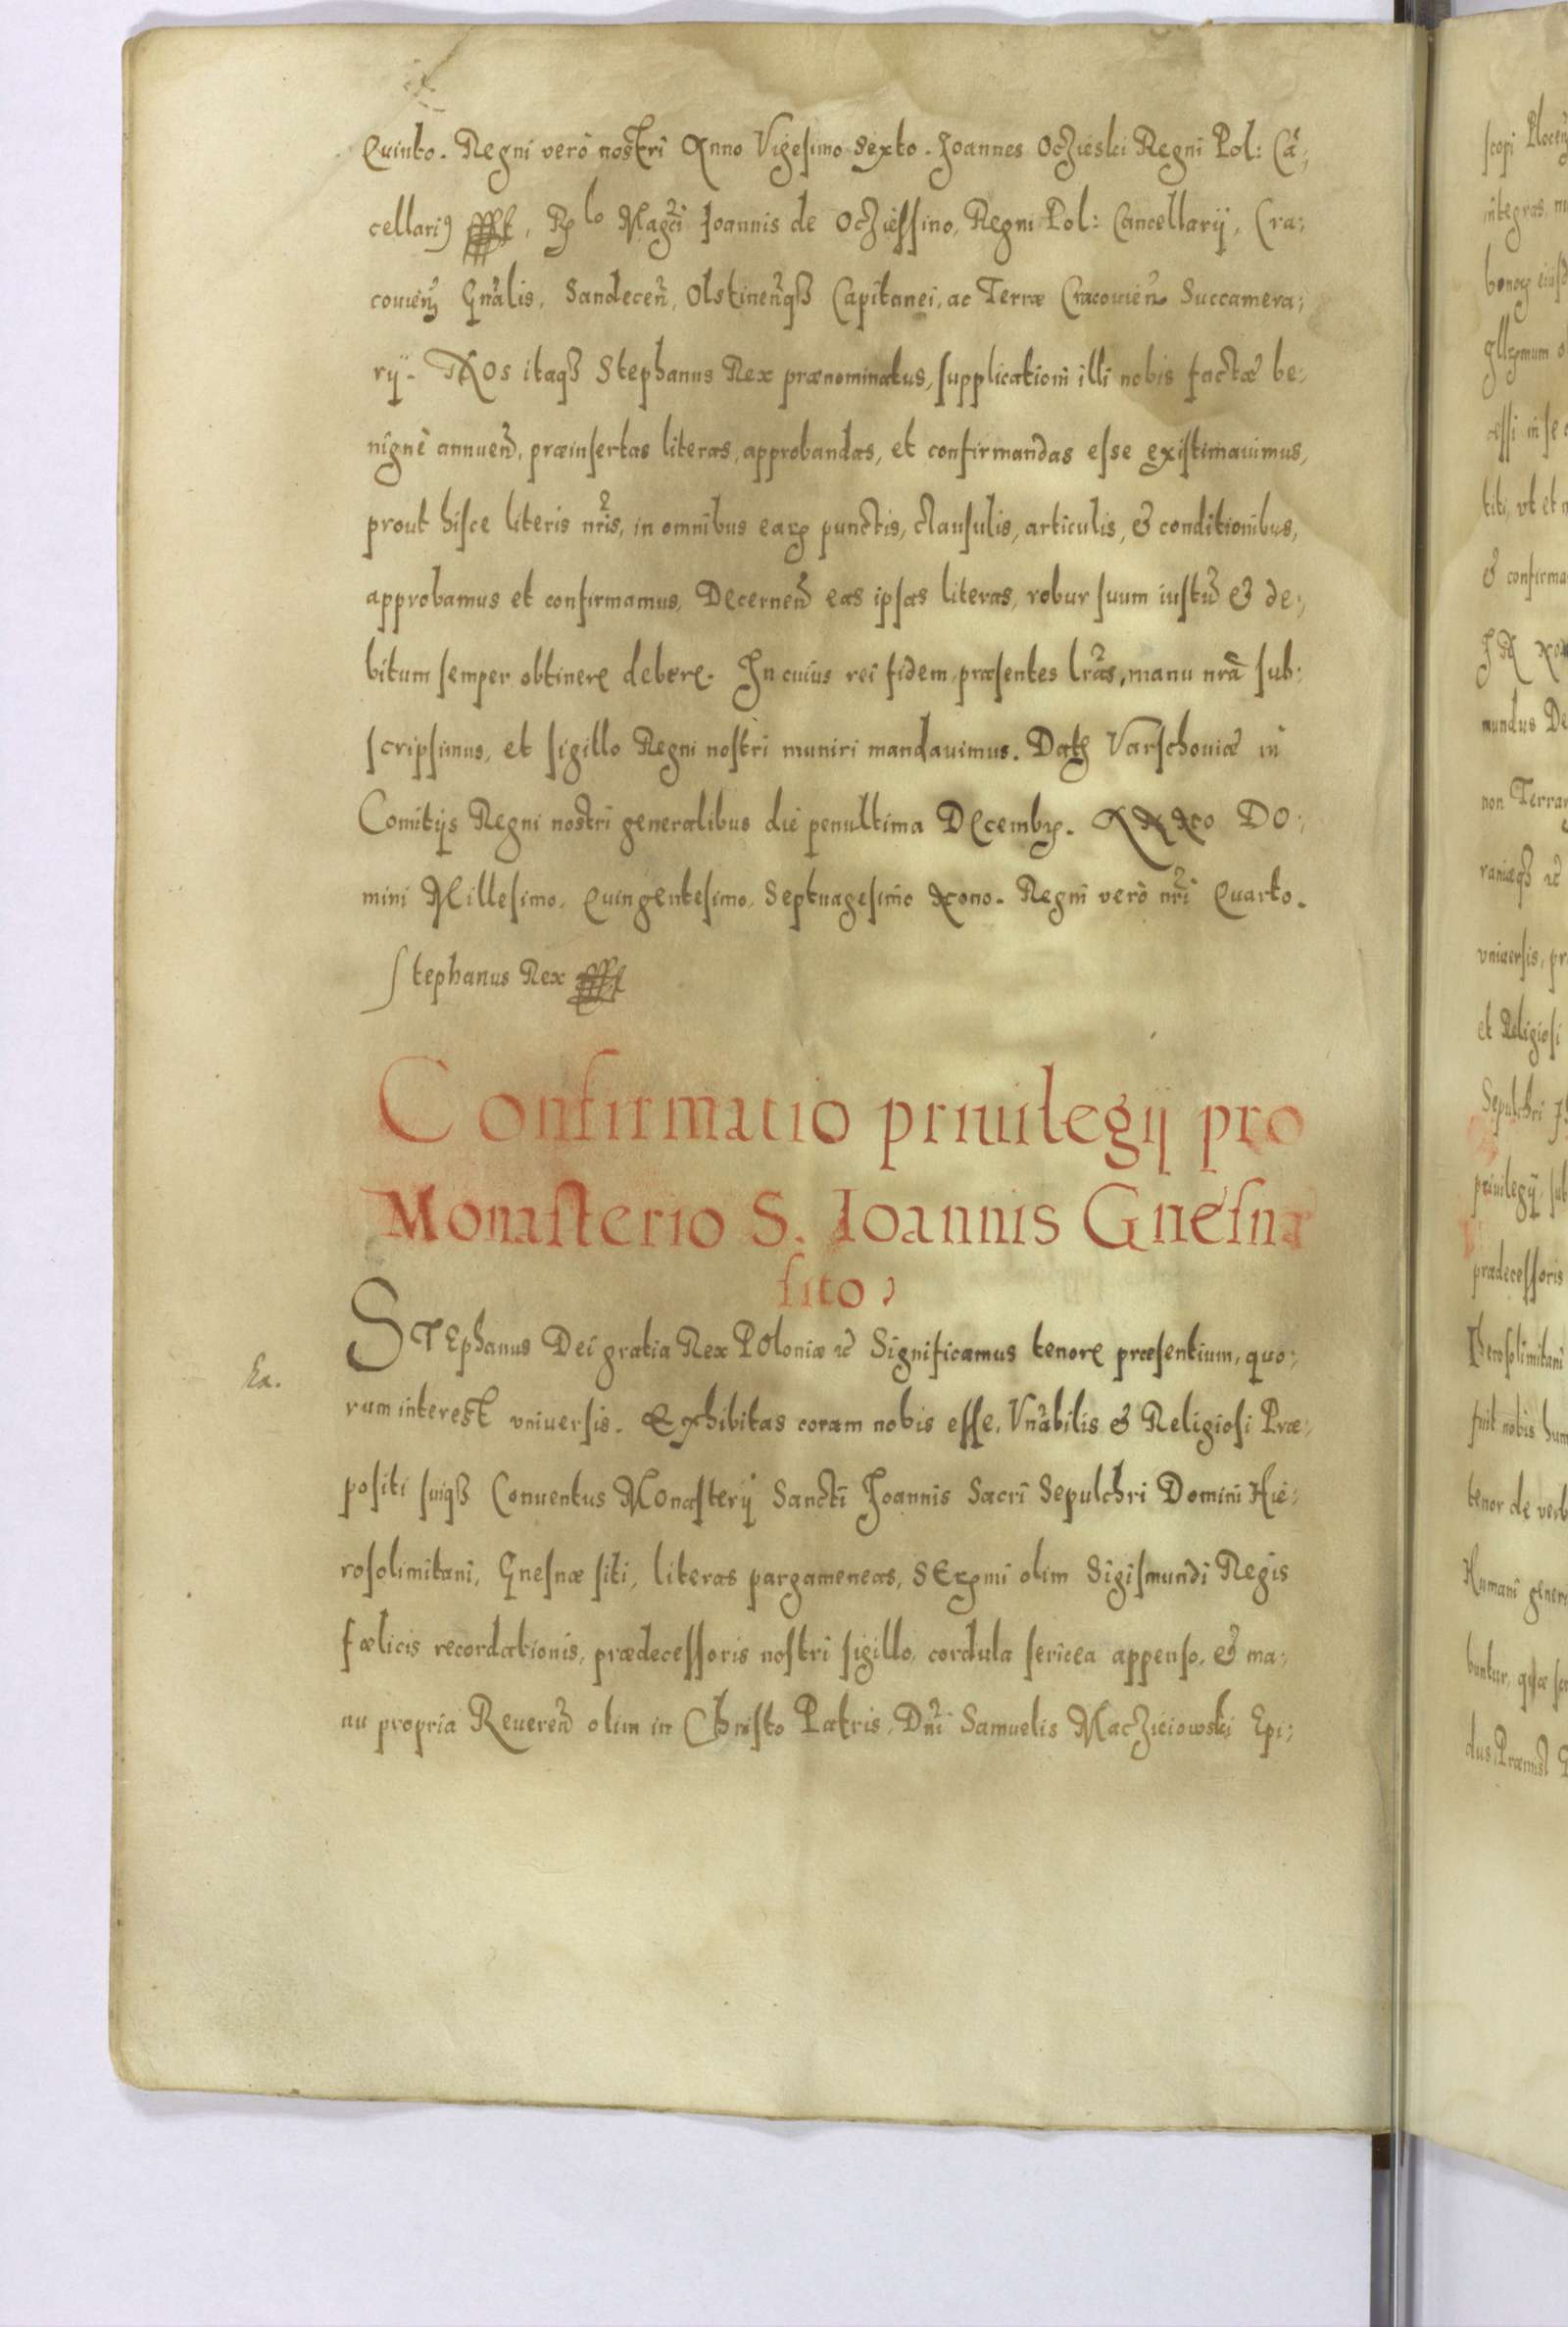 Quinto. Regni verò nostri Anno Vigesimo Sexto. Joannes Oczieski Regni Pol: Cã;
cellari9, Rlo Magci Joannis de Oczièssino, Regni Pol: Cancellarij, Cra;
couien Gnalis, Sandecen, Olstinenqȝ Capitanei, ac Terræ Cracouien Succamera;
rij. Nos itaqȝ Stephanus Rex prænominatus, supplicationi illi nobis factæ be;
nignè annuen, præinsertas literas, approbandas, et confirmandas esse existimauimus,
prout hisce literis nris, in omnibus earꝝ punctis, clausulis, articulis, & conditionibus,
approbamus et confirmamus, Decernen eas ipsas literas, robur suum iustũ & de;
bitum semper obtinere debere. In cuius rei fidem, præsentes lras, manu nrã sub;
scripsimus, et sigillo Regni nostri muniri mandauimus. Datȝ Varschouiæ in
Comitijs Regni nostri generalibus die penultima Decembꝝ. ANNO DO;
mini Millesimo, Quingentesimo, Septuagesimo Nono. Regni verò nri Quarto.
Stephanus Rex
Confirmatio priuilegij pro
Monasterio S. Joannis Gnesnæ
sito
STEphanus Dei gratia Rex Poloniæ &c Significamus tenore præsentium, quo;
Ea.
rum interest vniuersis. Exhibitas coram nobis esse, Vnabilis & Religiosi Præ;
positi suiqȝ Conuentus Monasterij Sancti Joannis Sacri Sepulchri Domini Hie;
rosolimitani, Gnesnæ siti, literas pargameneas, SEꝝmi olim Sigismundi Regis
fælicis recordationis, prædecessoris nostri sigillo, cordula sericea appenso, & ma;
nu propria Reueren olim in Christo Patris, Dni Samuelis Maczieiowski Epi;